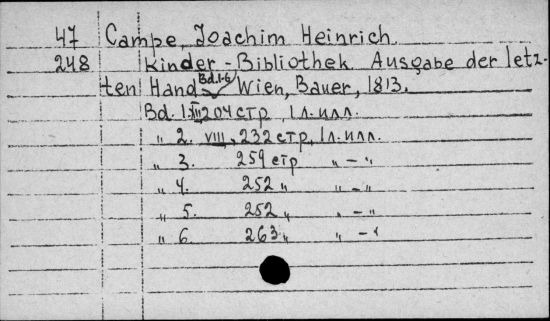 47 Campe, Joachim Heinrich.
248 Kinder-Bibliothek. Ausgabe der letz-
ten Hand Bd.1-6 Wien, Bauer, 1813.
Bd. 1. XII 204 стр, 1 л. илл.
„ 2. VIII, 232 стр, 1 л. илл.
„ 3. 259 стр „ - „
„ 4. 252 „ „ - „
„ 5. 252 „ „ - „
„ 6. 263 „ „ - „